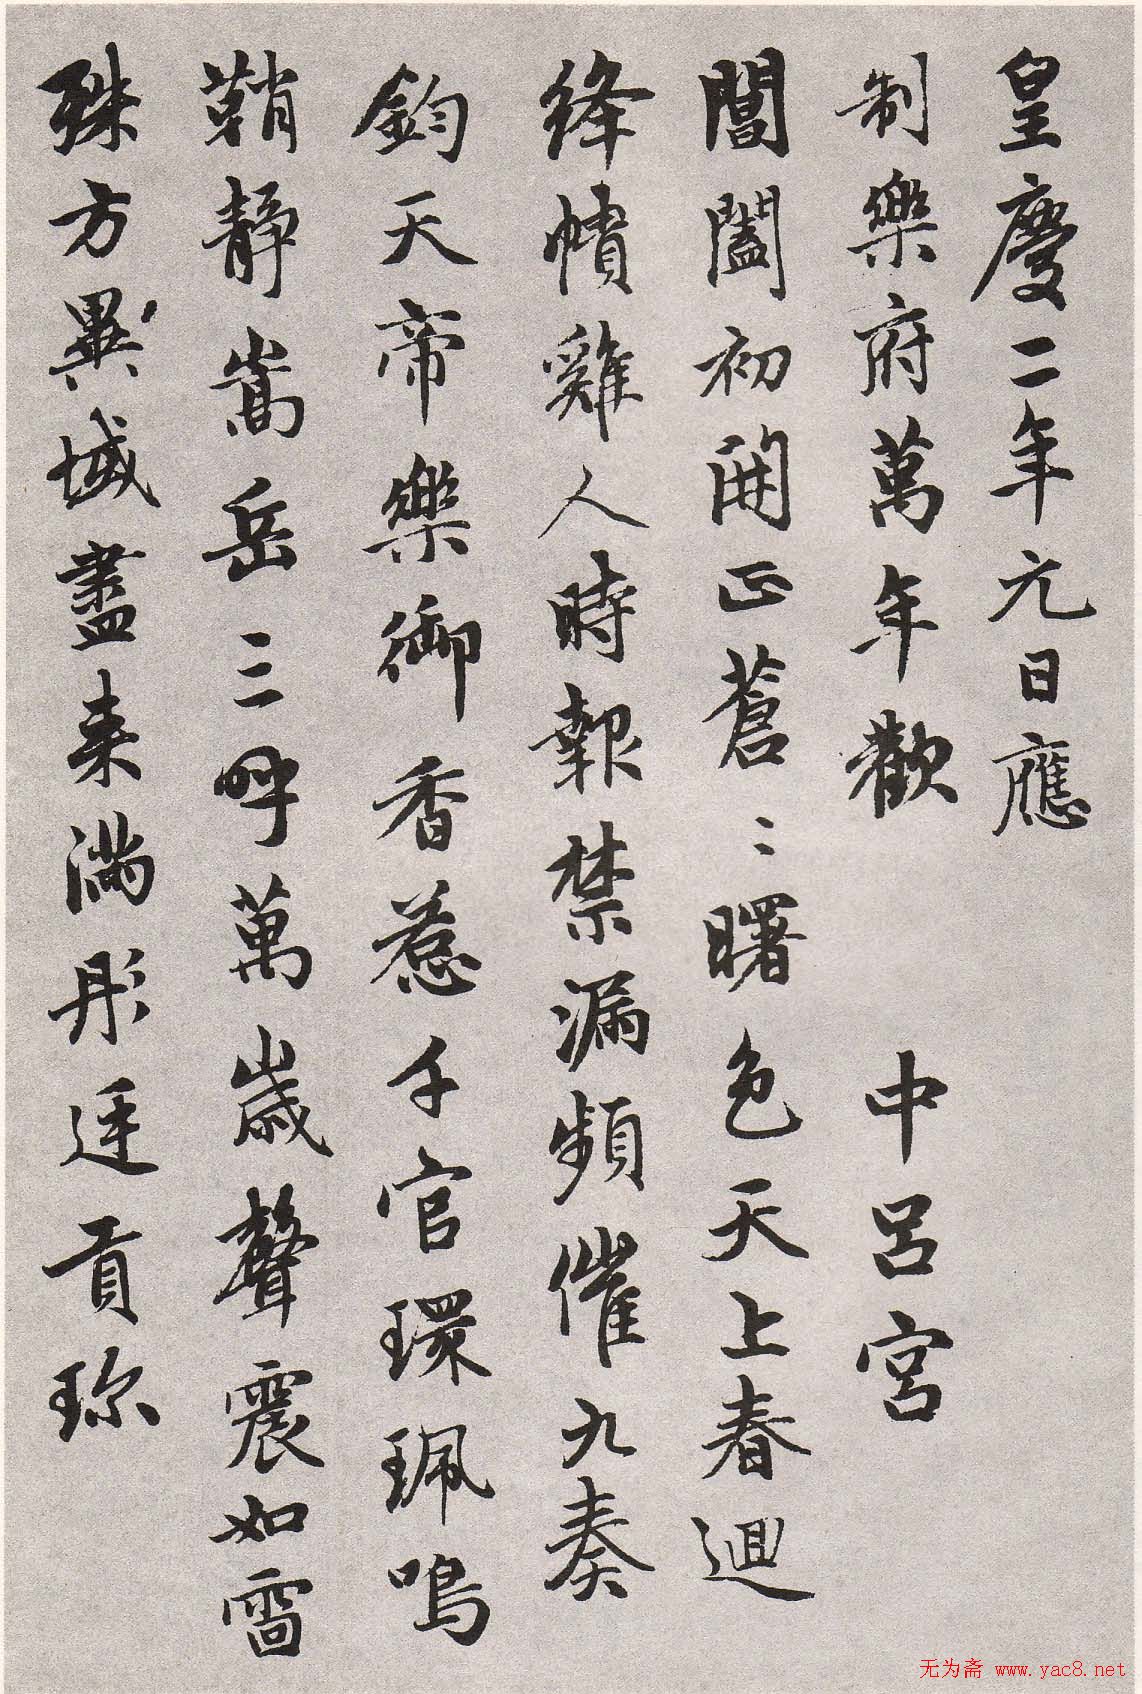 皇慶二年元日應
制樂府萬年歡 中呂宮
閶闔初開正蒼〻曙色天上春迴
絳幘雞人時報禁漏頻催九奏
鈞天帝樂御香惹千官環珮鳴
鞘靜嵩岳三呼萬歲聲震如雷
殊方異域盡来滿彤廷貢珎
无为斋 www.yac8.net